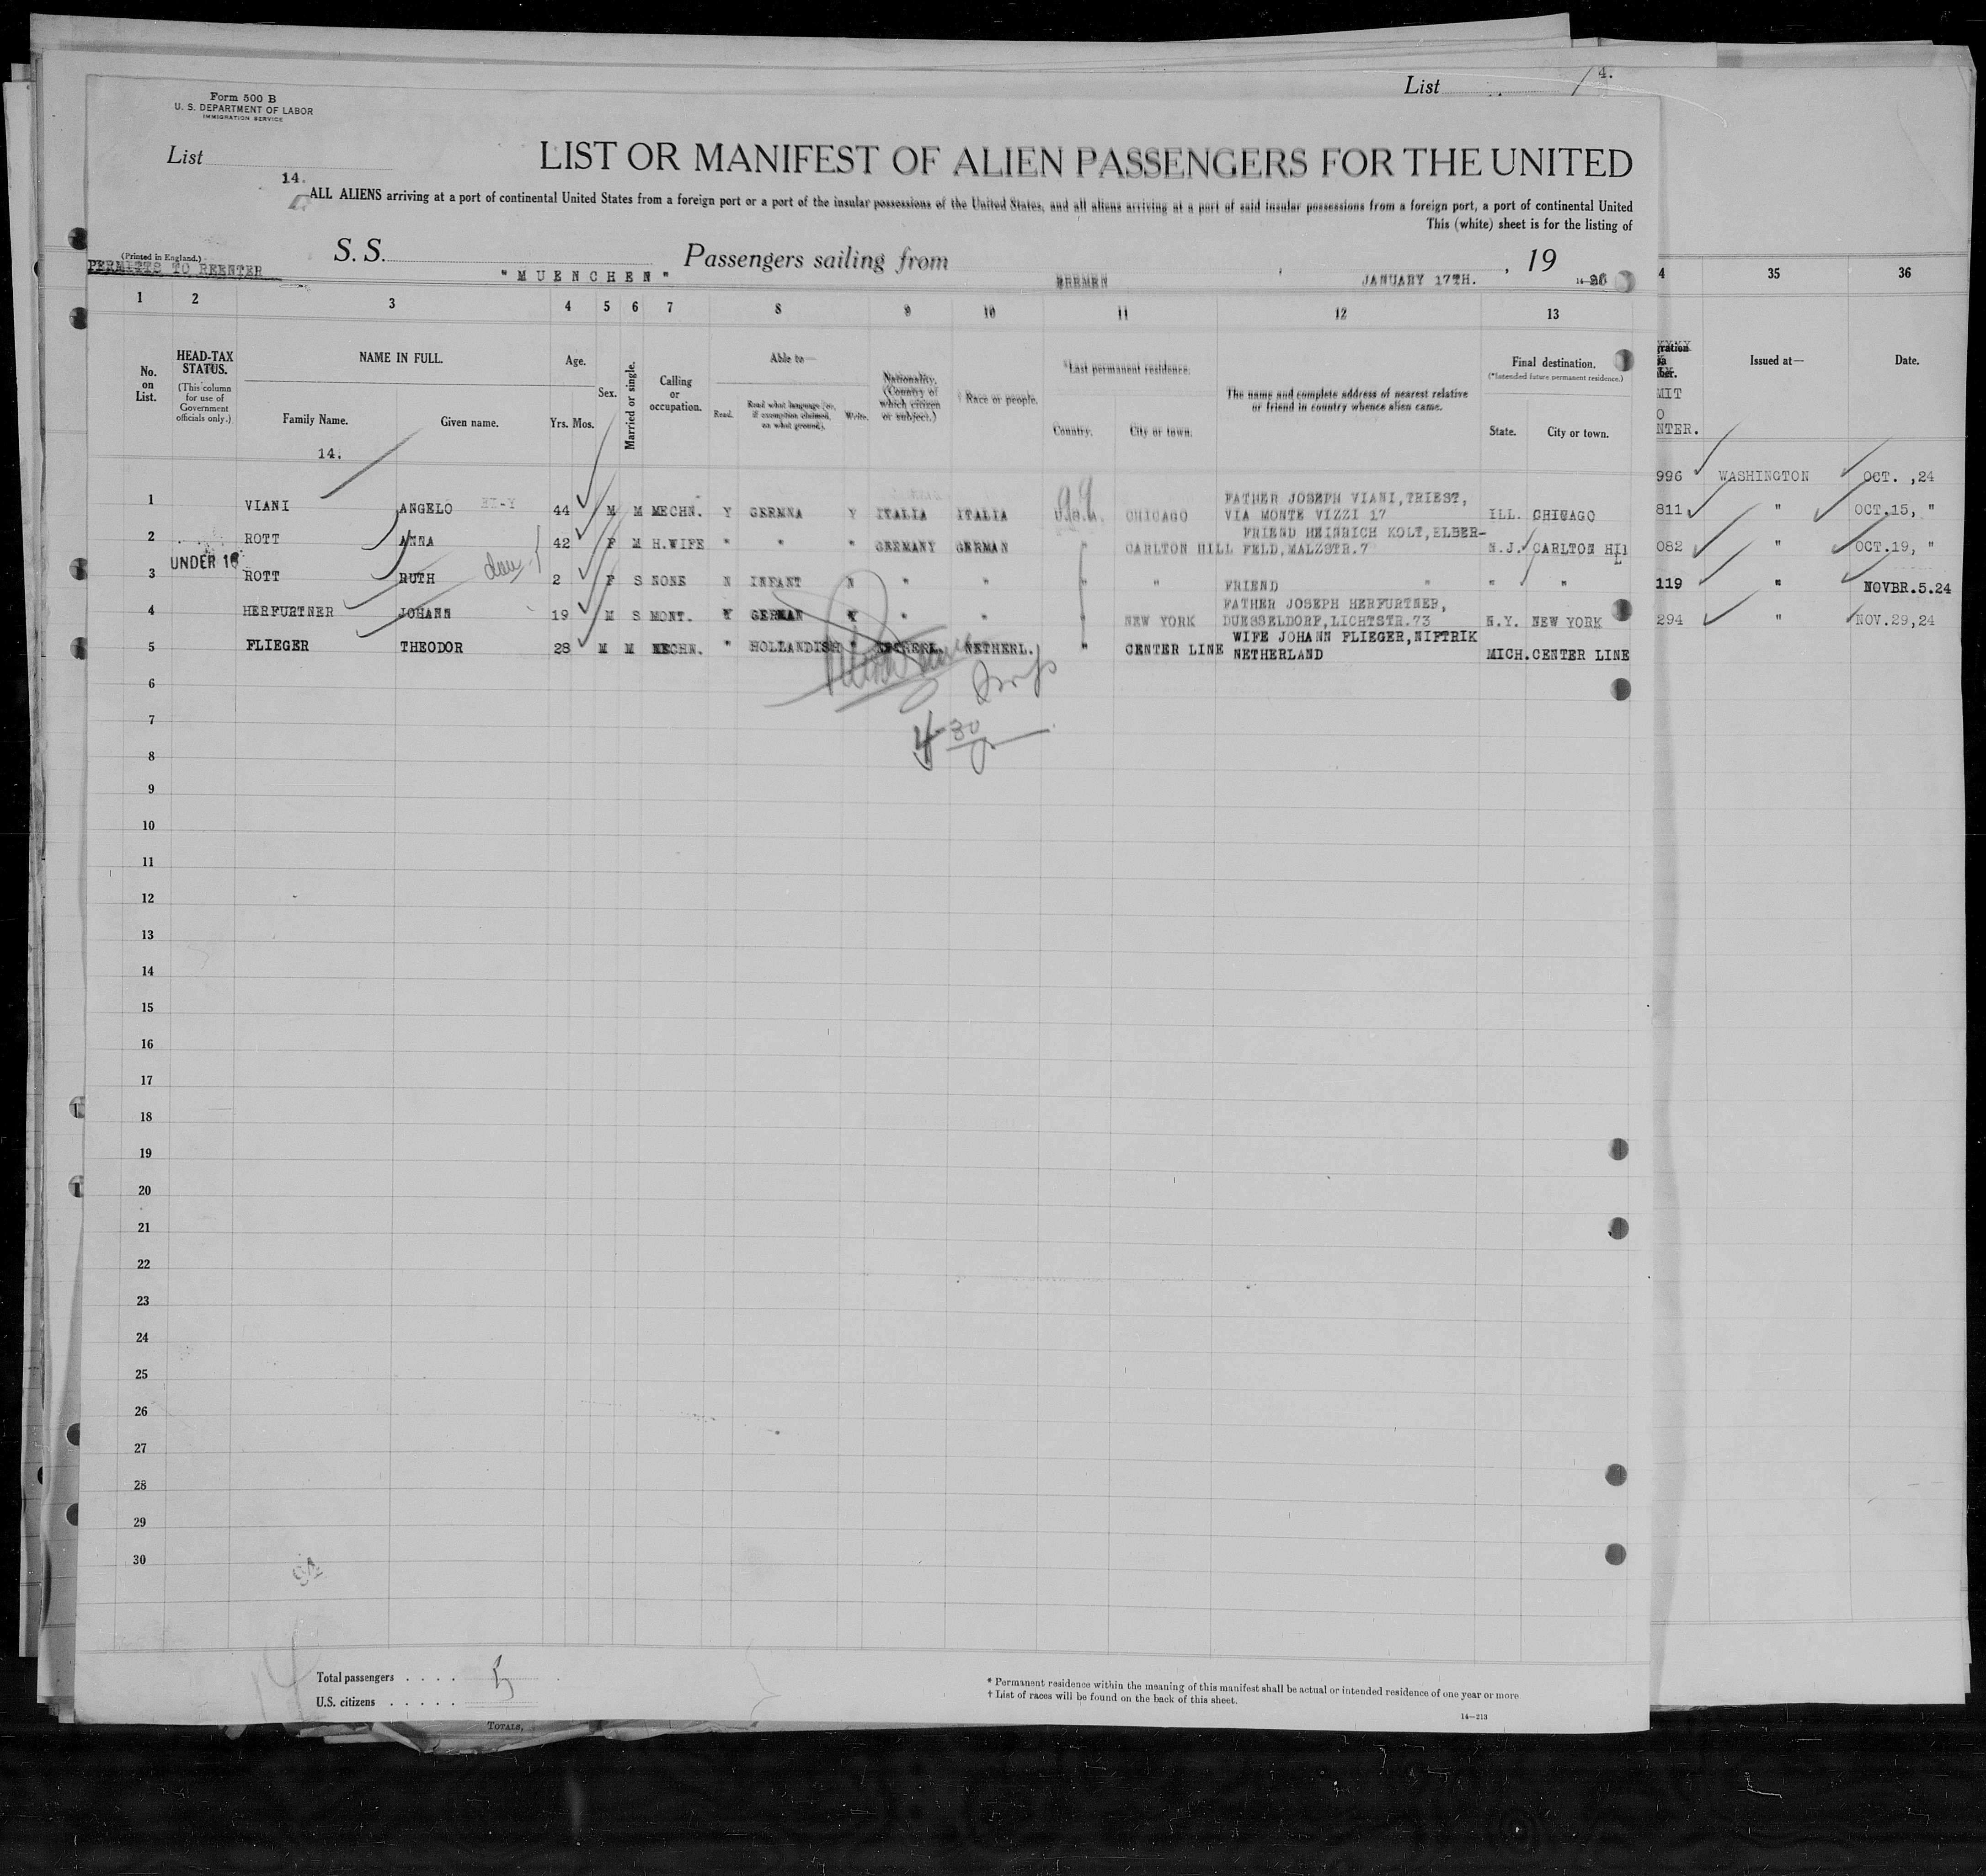 Form 500 B
U. S. DEPARTMENT OF LABOR
IMMIGRATION SERVICE
List 4.
List
14.
LIST OR MANIFEST OF ALIEN PASSENGERS FOR THE UNITED
ALL ALIENS arriving at a port of continental United States from a foreign port or a port of the insular possessions of the United States, and all aliens arriving at a port of said insular possessions from a foreign port, a port of continental United
This (white) sheet is for the listing of
(Printed in England.)
PERMITTS TO REENTER
S. S. "MUENCHEN" Passengers sailing from BREMEN , JANUARY 17TH. , 19 26
1 2 3 4 5 6 7 8 9 10 11 12 13 4 35 36
No. on List.
HEAD-TAX STATUS.
(This column for use of Government officials only.)
NAME IN FULL.
Family Name. Given name.
14.
Age.
Yrs. Mos.
Sex.
Married or single.
Calling or occupation.
Able to—
Read. Read what language [or, if exemption claimed, on what ground]. Write.
Nationality. (Country of which citizen or subject.)
† Race or people.
*Last permanent residence.
Country. City or town.
The name and complete address of nearest relative or friend in country whence alien came.
Final destination.
(*Intended future permanent residence.)
State. City or town.
gration
MIT
O
NTER.
Issued at—
Date.
1 VIANI ANGELO 44 M M MECHN. Y GERMNA Y ITALIA ITALIA U.S.A. CHICAGO FATHER JOSEPH VIANI,TRIEST, VIA MONTE VIZZI 17 ILL. CHICAGO 996 WASHINGTON OCT. ,24
2 ROTT ANNA 42 F M H.WIFE " " " GERMANY GERMAN " CARLTON HILL FRIEND HEINRICH KOLT,ELBER-FELD,MALZSTR.7 N.J. CARLTON HIll 811 " OCT.15, "
3 UNDER 16 ROTT RUTH 2 F S NONE N INFANT N " " " " FRIEND " " " 082 " OCT.19, "
4 HERFURTNER JOHANN 19 M S MONT. Y GERMAN Y " " " NEW YORK FATHER JOSEPH HERFURTNER, DUESSELDORF,LICHTSTR.73 N.Y. NEW YORK 119 " NOVBR.5.24
5 FLIEGER THEODOR 28 M M MECHN. " HOLLANDISH " NETHERL. NETHERL. " CENTER LINE WIFE JOHANN FLIEGER,NIFTRIK NETHERLAND MICH. CENTER LINE 294 " NOV.29,24
6
7
4 30
8
9
10
11
12
13
14
15
16
17
18
19
20
21
22
23
24
25
26
27
28
29
30
94
14
Total passengers . . . . 5
U.S. citizens . . . . .
* Permanent residence within the meaning of this manifest shall be actual or intended residence of one year or more
† List of races will be found on the back of this sheet.
14—213
TOTALS,